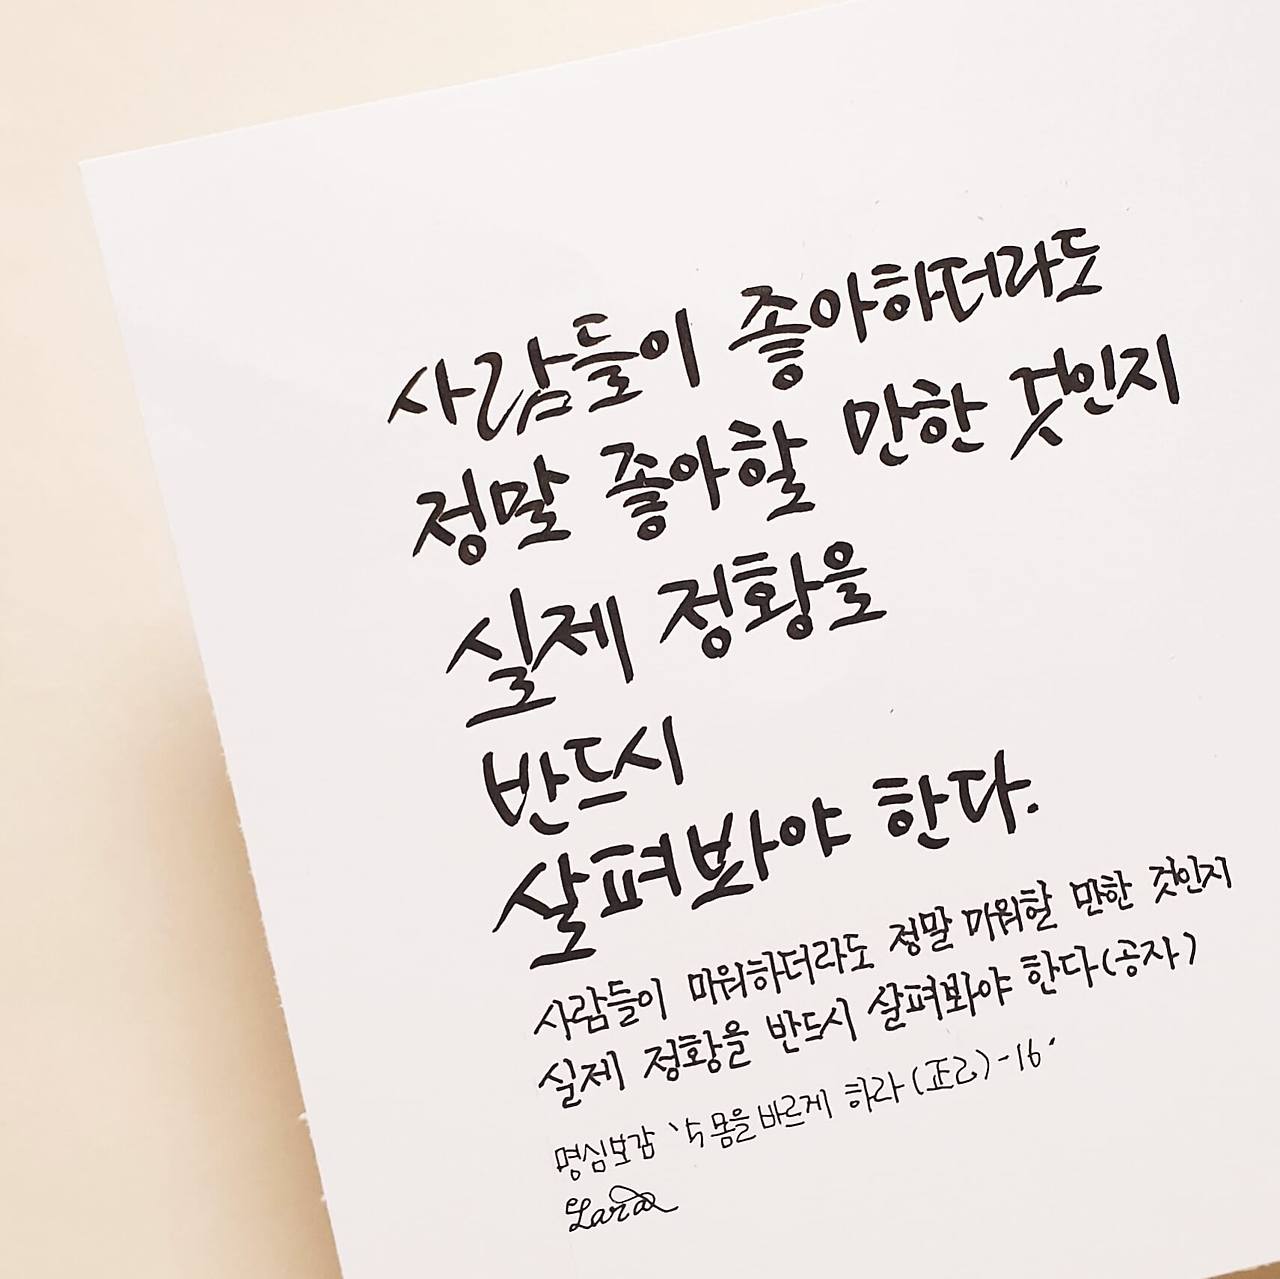 사람들이 좋아하더라도
정말 좋아할 만한 것인지
실제 정황을
반드시
살펴봐야 한다.
사람들이 미워하더라도 정말 미워할 만한 것인지
실제 정황을 반드시 살펴봐야 한다(공자)
명심보감 '5 몸을 바르게 하라(正己)-16'